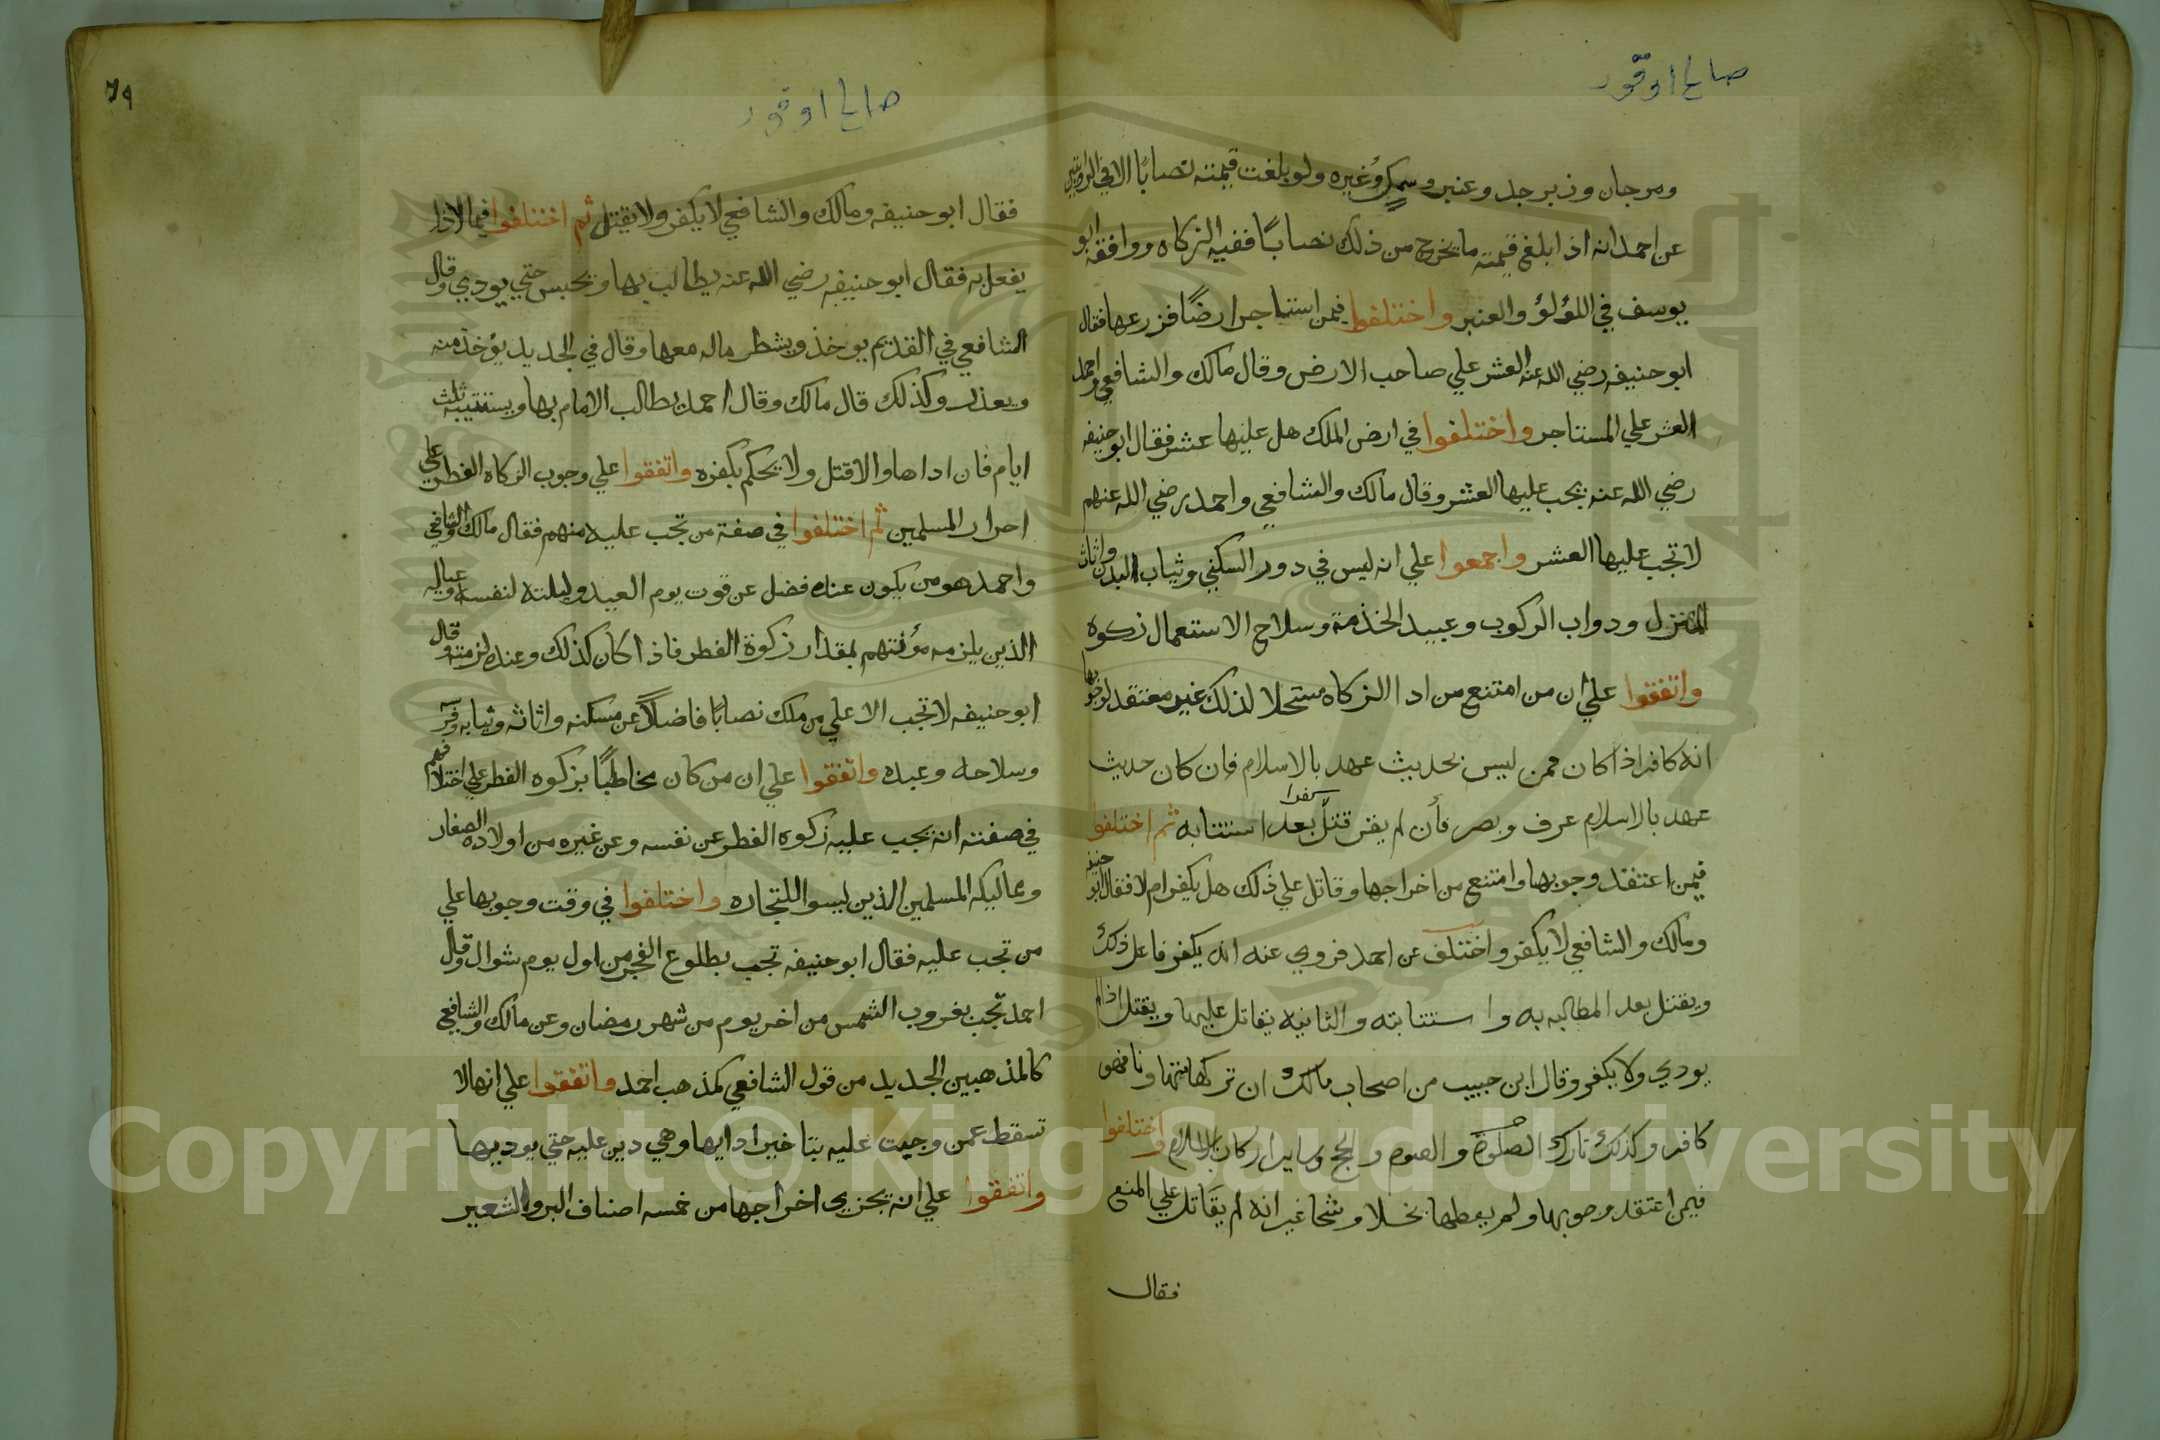 صالح اوقور
ومرجان وزبرجد وعنبر وسمك وغيره ولو بلغت قيمته نصابًا الا في الروايتين
عن احمد انه اذا بلغ قيمته ما يخرج من ذلك نصابًا ففيه الزكاه ووافقه ابو
يوسف في اللؤلؤ والعنبر واختلفوا فيمن استاجر ارضًا فزرعها فقال
ابو حنيفه رضي الله عنه العشر علي صاحب الارض وقال مالك والشافعي واحمد
العشر علي المستاجر واختلفوا في ارض الملك هل عليها عشر فقال ابو حنيفه
رضي الله عنه يجب عليها العشر وقال مالك والشافعي واحمد رضي الله عنهم
لا تجب عليها العشر واجمعوا علي انه ليس في دور السكني وثياب البدن واثاث
المنزل ودواب الركوب وعبيد الخدمة وسلاح الاستعمال زكوه
واتفقوا علي ان من امتنع من ادا الزكاه مستحلا لذلك غير معتقد لوجوبها
انه كافر اذا كان ممن ليس بحديث عهد بالاسلام فان كان حديث
عهد بالاسلام عرف وبصر فأن لم يقر قتل كفرا بعد استتابه ثم اختلفوا
فيمن اعتقد وجوبها وامتنع من اخراجها وقاتل علي ذلك هل يكفر ام لا فقال ابو حنيفه
ومالك والشافعي لا يكفر واختلف عن احمد فروي عنه انه يكفر فاعل ذلك
ويقتل بعد المطالبه به واستتابته والثانيه يقاتل عليها ويقتل اذا لم
يودي ولا يكفر وقال ابن حبيب من اصحاب مالك ان تركها تهاونا فهو
كافر وكذلك تارك الصلوة والصوم والحج وساير اركان الاسلام واختلفوا
فيمن اعتقد وجوبها ولم يعطها بخلا وشحا غير انه لم يقاتل علي المنع
فقال
79
صالح اوقور
فقال ابو حنيفه ومالك والشافعي لا يكفر ولا يقتل ثم اختلفوا فيما اذا
يفعل به فقال ابو حنيفه رضي الله عنه يطالب بها ويحبس حتي يودي وقال
الشافعي في القديم يوخذ وبشطر ماله معها وقال في الجديد يؤخذ منه
ويعذر وكذلك قال مالك وقال احمد يطالب الامام بها ويستتيبه ثلث
ايام فان اداها والا قتل ولا يحكم بكفره واتفقوا علي وجوب الزكاه الفطر علي
احرار المسلمين ثم اختلفوا في صفة من تجب عليه منهم فقال مالك والشافعي
واحمد هو من يكون عنده فضل عن قوت يوم العيد وليلته لنفسه وعياله
الذين يلزمه مؤنتهم بمقدار زكوة الفطر فاذا كان كذلك وعنده لزمته وقال
ابو حنيفه لا تجب الا علي من ملك نصابًا فاضلاً عن مسكنه واثاثه وثيابه وفرسه
وسلاحه وعبده واتفقوا علي ان من كان مخاطبًا بزكوه الفطر علي اختلافهم
في صفته انه يجب عليه زكوه الفطر عن نفسه وعن غيره من اولاده الصغار
ومماليكه المسلمين الذين ليسوا للتجاره واختلفوا في وقت وجوبها علي
من تجب عليه فقال ابو حنيفه تجب بطلوع الفجر من اول يوم شوال وقال
احمد تجب بغروب الشمس من اخر يوم من شهر رمضان وعن مالك والشافعي
كالمذهبين الجديد من قول الشافعي كمذهب احمد واتفقوا علي انها لا
تسقط عمن وجبت عليه بتاخير ادايها وهي دين عليه حتي يوديها
واتفقوا علي انه يجزي اخراجها من خمسه اصناف البر والشعير
Copyright © King Saud University